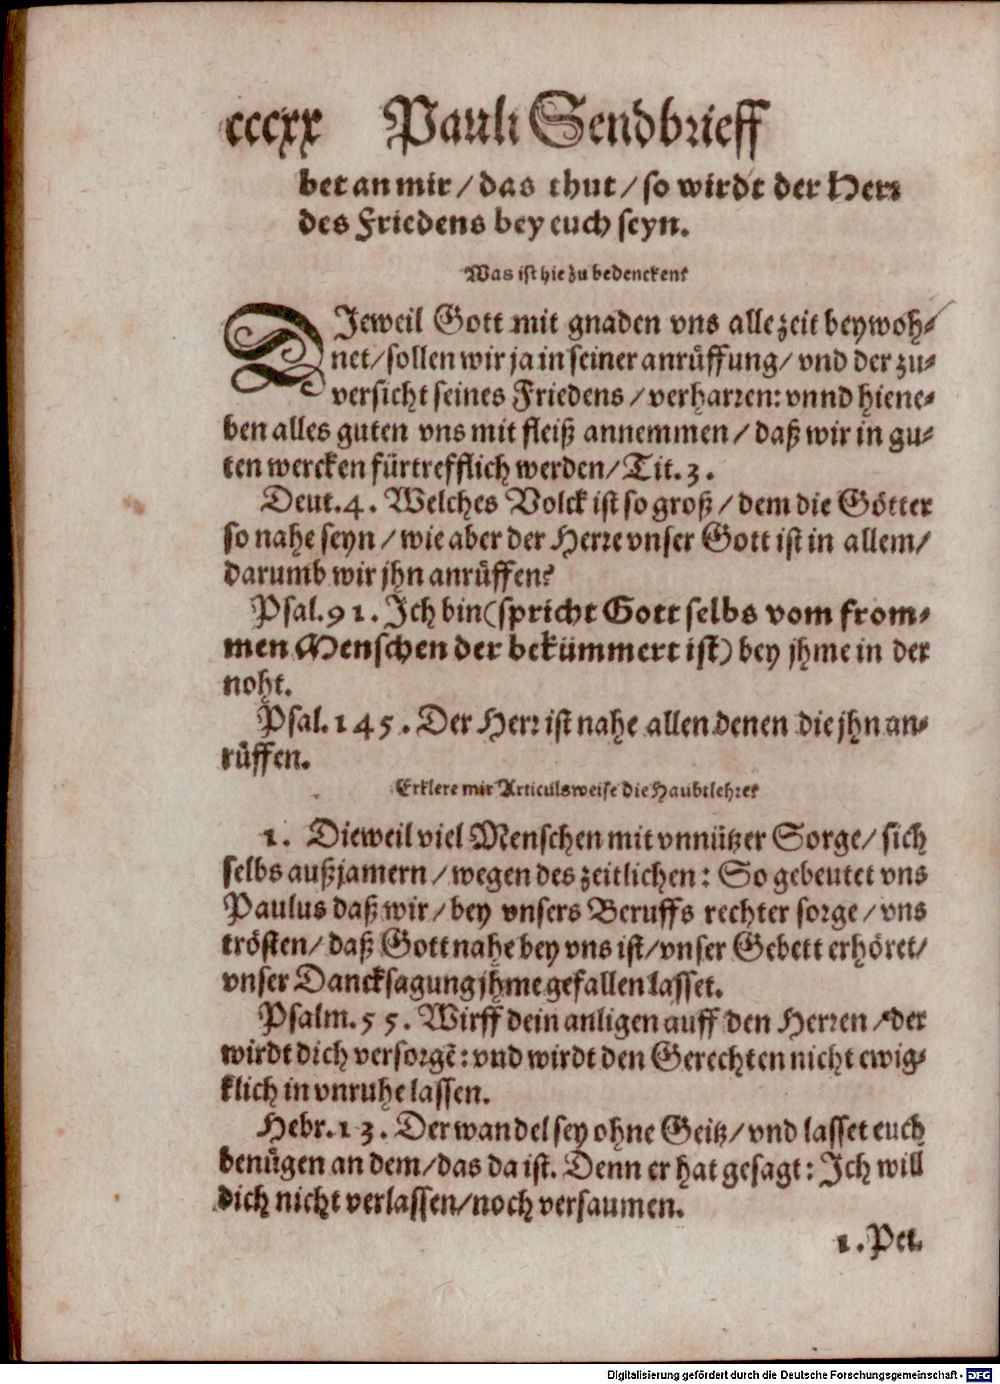 cccxx Pauli Sendbrieff
bet an mir / das thut / so wirdt der Herr
des Friedens bey euch seyn.
Was ist hie zu bedencken?
DJeweil Gott mit gnaden vns alle zeit beywoh-
net / sollen wir ja in seiner anrüffung / vnd der zu-
versicht seines Friedens / verharren: vnnd hiene-
ben alles guten vns mit fleiß annemmen / daß wir in gu-
ten wercken fürtrefflich werden / Tit. 3.
Deut. 4. Welches Volck ist so groß / dem die Götter
so nahe seyn / wie aber der Herre vnser Gott ist in allem /
darumb wir jhn anrüffen?
Psal. 91. Jch bin (spricht Gott selbs vom from-
men Menschen der bekümmert ist) bey jhme in der
noht.
Psal. 145. Der Herr ist nahe allen denen die jhn an-
rüffen.
Erklere mir Articulsweise die Haubtlehre?
1. Dieweil viel Menschen mit vnnützer Sorge / sich
selbs außjamern / wegen des zeitlichen: So gebeutet vns
Paulus daß wir / bey vnsers Beruffs rechter sorge / vns
trösten / daß Gott nahe bey vns ist / vnser Gebett erhöret /
vnser Dancksagung jhme gefallen lasset.
Psalm. 55. Wirff dein anligen auff den Herren / der
wirdt dich versorgẽ: vnd wirdt den Gerechten nicht ewig-
klich in vnruhe lassen.
Hebr. 13. Der wandel sey ohne Geitz / vnd lasset euch
benügen an dem / das da ist. Denn er hat gesagt: Jch will
dich nicht verlassen / noch versaumen.
1. Pet.
Digitalisierung gefördert durch die Deutsche Forschungsgemeinschaft - DFG